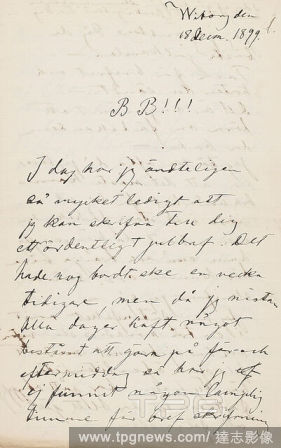 Wiborg den
18 decem. 1899.
B B!!!
I dag har jag ändteligen
så mycket ledigt att
jag kan skrifva till dig
ett ordentligt julbref. Det
hade nog bordt ske en vecka
tidigare, men då jag nästan
alla dagar haft något
bestämdt att göra på för och
eftermiddag så har jag
ej funnit någon lämplig
timme för bref
達志影像
www.tpgnews.com/達志影像